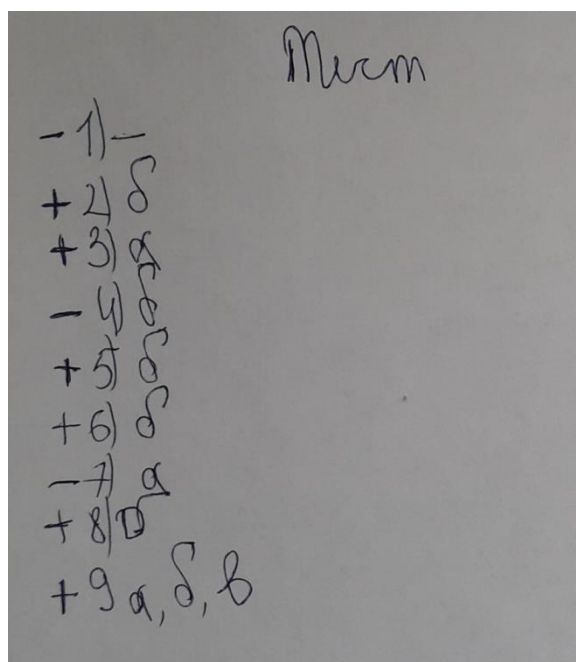 Тест
- 1) -
+ 2) б
+ 3) а
- 4) б
+ 5) б
+ 6) б
- 7) а
+ 8)
+ 9 а, б, в